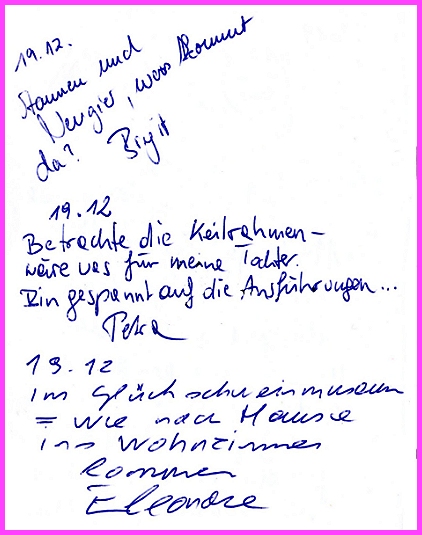 19.12.
Staunen und
Neugier, was kommt
da? Birgit
19.12
Betrachte die Keilrahmen –
wäre was für meine Tochter.
Bin gespannt auf die Ausführungen...
Petra
19.12
im Glückschweinmuseum
= wie nach Hause
ins Wohnzimmer
kommen
Eleonore